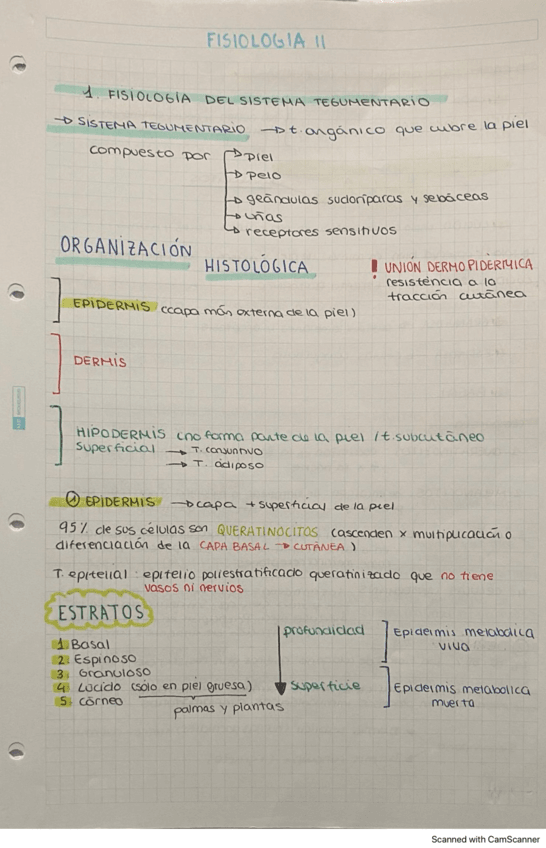 FISIOLOGIA II
1. FISIOLOGÍA DEL SISTEMA TEGUMENTARIO
→ SISTEMA TEGUMENTARIO → t. orgánico que cubre la piel
compuesto por → piel
→ pelo
→ geándulas sudoríparas y sebáceas
→ uñas
→ receptores sensitivos
ORGANIZACIÓN
HISTOLÓGICA
! UNIÓN DERMOPIDÉRMICA
resistencia a la
tracción cutánea
EPIDERMIS (capa món externa de la piel)
DERMIS
HIPODERMIS (no forma parte de la piel / t. subcutáneo
superficial → T. conjuntivo
→ T. adiposo
① EPIDERMIS → capa + superficial de la piel
95% de sus células son QUERATINOCITOS (ascienden x multiplicación o
diferenciación de la CAPA BASAL → CUTÁNEA)
T. epitelial: epitelio poliestratificado queratinizado que no tiene
vasos ni nervios
ESTRATOS
1. Basal
2. Espinoso
3. Granuloso
4. Lucido (sólo en piel gruesa)
5. Córneo
palmas y plantas
profundidad
superficie
Epidermis metabólica
viva
Epidermis metabólica
muerta
Scanned with CamScanner